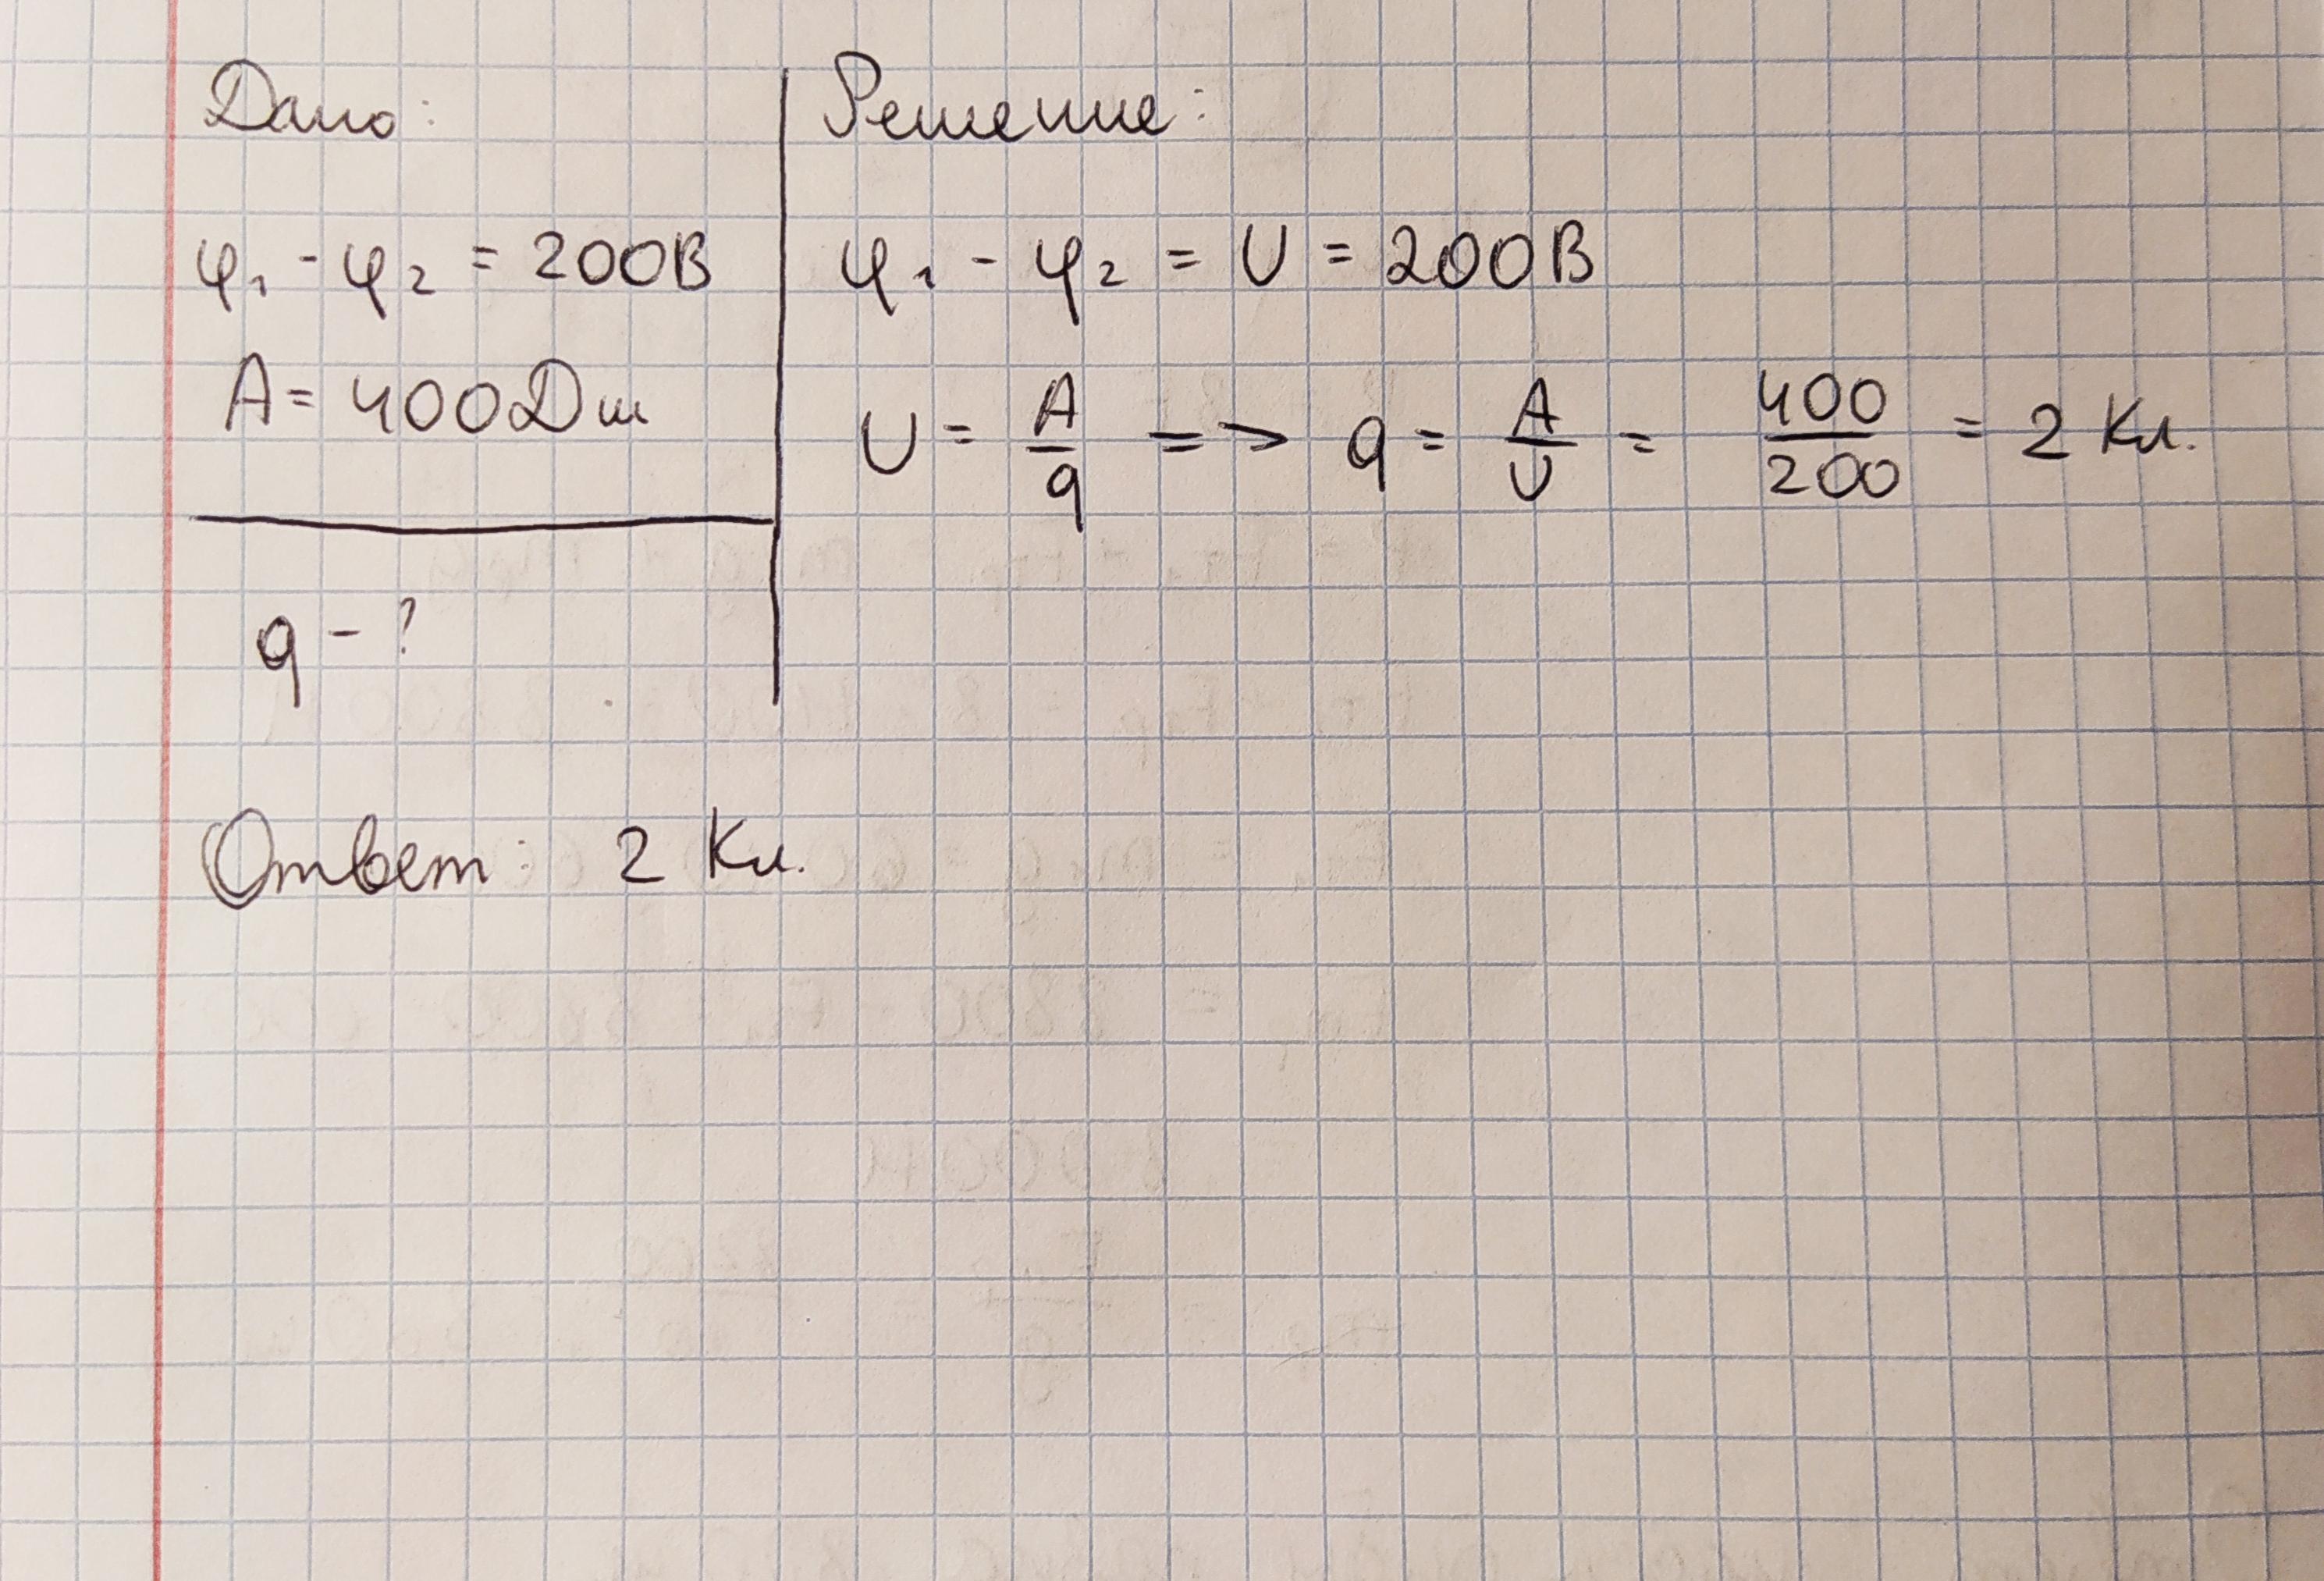 Дано:
φ₁ - φ₂ = 200В
A = 400Дж
q - ?
Решение:
φ₁ - φ₂ = U = 200В
U = A/q => q = A/U = 400/200 = 2 Кл.
Ответ: 2 Кл.